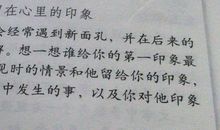 在心里的印象
会经常遇到新面孔，并在后来的
解。想一想谁给你的第一印象最
见时的情景和他留给你的印象，
中发生的事，以及你对他印象